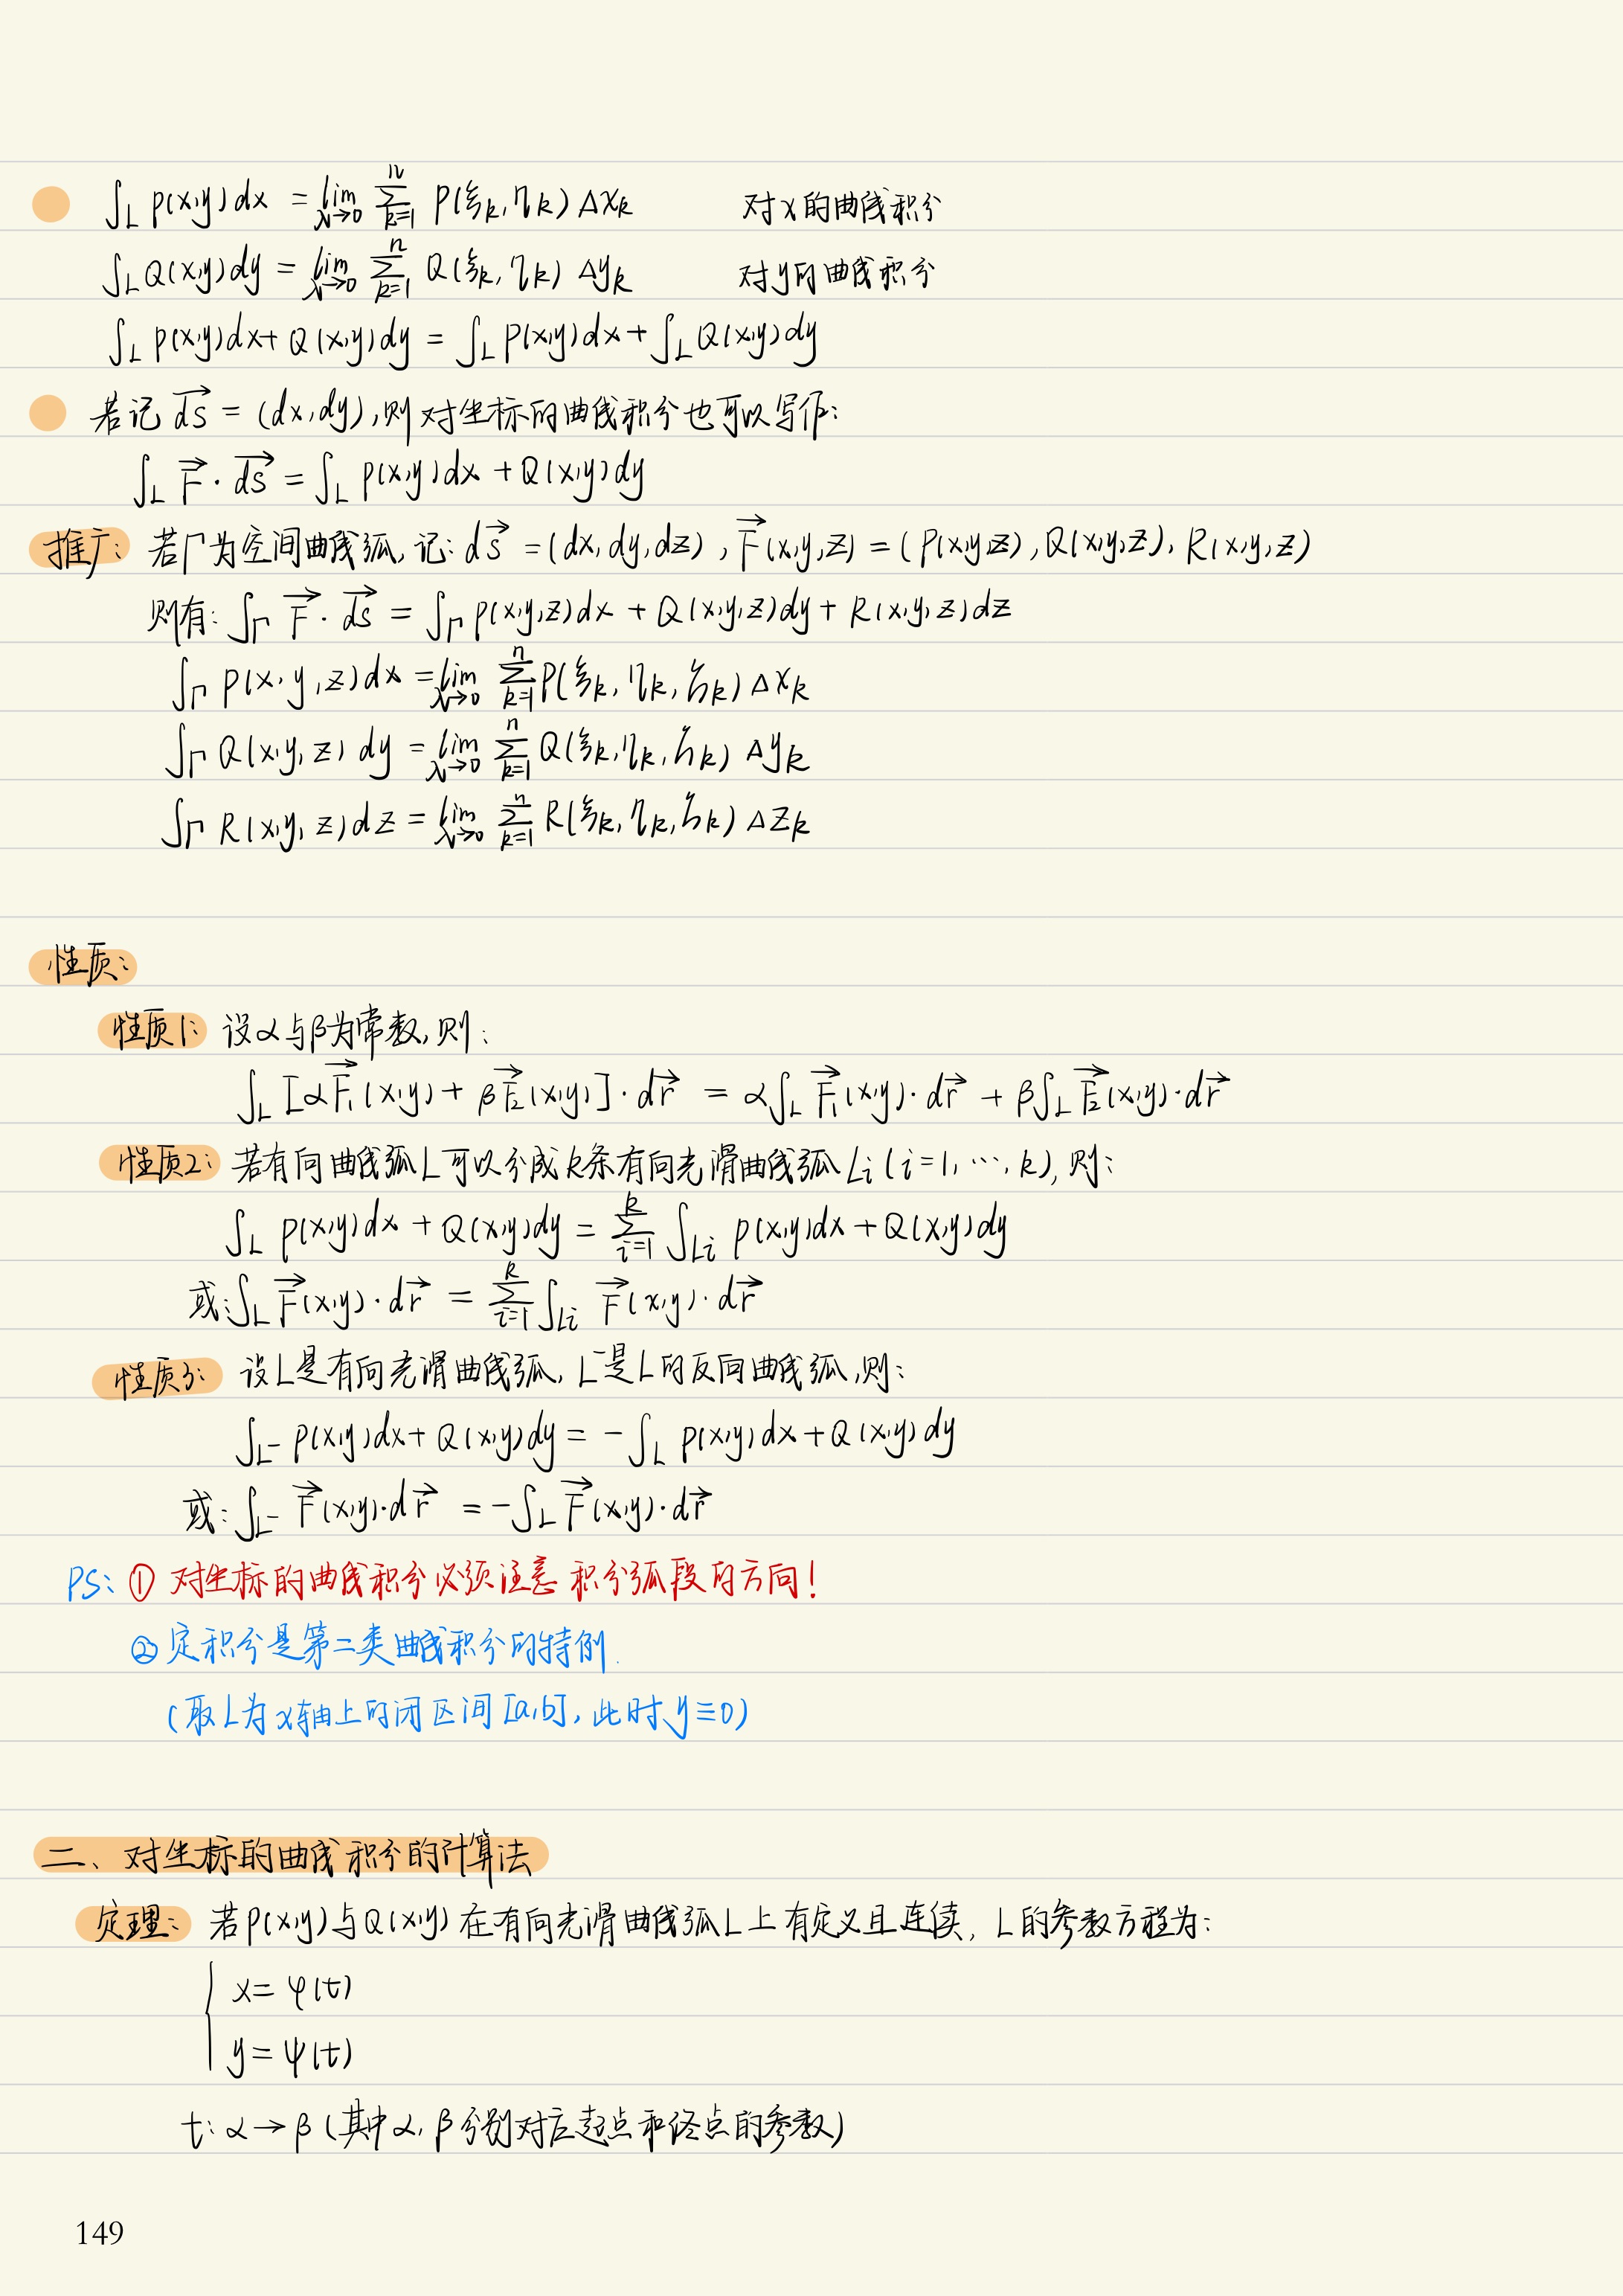 ∫_L P(x,y)dx = lim_{λ→0} ∑_{k=1}^{n} P(ξ_k, η_k) Δx_k 对x的曲线积分
∫_L Q(x,y)dy = lim_{λ→0} ∑_{k=1}^{n} Q(ξ_k, η_k) Δy_k 对y的曲线积分
∫_L P(x,y)dx + Q(x,y)dy = ∫_L P(x,y)dx + ∫_L Q(x,y)dy
若记 \vec{ds} = (dx,dy),则对坐标的曲线积分也可以写作:
∫_L \vec{F}·\vec{ds} = ∫_L P(x,y)dx + Q(x,y)dy
推广: 若Γ为空间曲线弧,记: d\vec{s} = (dx,dy,dz), \vec{F}(x,y,z) = (P(x,y,z), Q(x,y,z), R(x,y,z)
则有: ∫_Γ \vec{F}·\vec{ds} = ∫_Γ P(x,y,z)dx + Q(x,y,z)dy + R(x,y,z)dz
∫_Γ P(x,y,z)dx = lim_{λ→0} ∑_{k=1}^{n} P(ξ_k, η_k, ζ_k) Δx_k
∫_Γ Q(x,y,z)dy = lim_{λ→0} ∑_{k=1}^{n} Q(ξ_k, η_k, ζ_k) Δy_k
∫_Γ R(x,y,z)dz = lim_{λ→0} ∑_{k=1}^{n} R(ξ_k, η_k, ζ_k) Δz_k
性质:
性质1: 设α与β为常数,则:
∫_L [α\vec{F₁}(x,y) + β\vec{F₂}(x,y)]·d\vec{r} = α∫_L \vec{F₁}(x,y)·d\vec{r} + β∫_L \vec{F₂}(x,y)·d\vec{r}
性质2: 若有向曲线弧L可以分成k条有向光滑曲线弧L_i (i=1,⋯,k),则:
∫_L P(x,y)dx + Q(x,y)dy = ∑_{i=1}^{k} ∫_{L_i} P(x,y)dx + Q(x,y)dy
或: ∫_L \vec{F}(x,y)·d\vec{r} = ∑_{i=1}^{k} ∫_{L_i} \vec{F}(x,y)·d\vec{r}
性质3: 设L是有向光滑曲线弧, L⁻是L的反向曲线弧,则:
∫_{L⁻} P(x,y)dx + Q(x,y)dy = -∫_L P(x,y)dx + Q(x,y)dy
或: ∫_{L⁻} \vec{F}(x,y)·d\vec{r} = -∫_L \vec{F}(x,y)·d\vec{r}
PS: ① 对坐标的曲线积分必须注意积分弧段的方向!
② 定积分是第二类曲线积分的特例.
(取L为x轴上的闭区间[a,b],此时y≡0)
二、对坐标的曲线积分的计算法
定理: 若P(x,y)与Q(x,y)在有向光滑曲线弧L上有定义且连续, L的参数方程为:
{ x = φ(t)
y = ψ(t)
t: α→β (其中α,β分别对应起点和终点的参数)
149